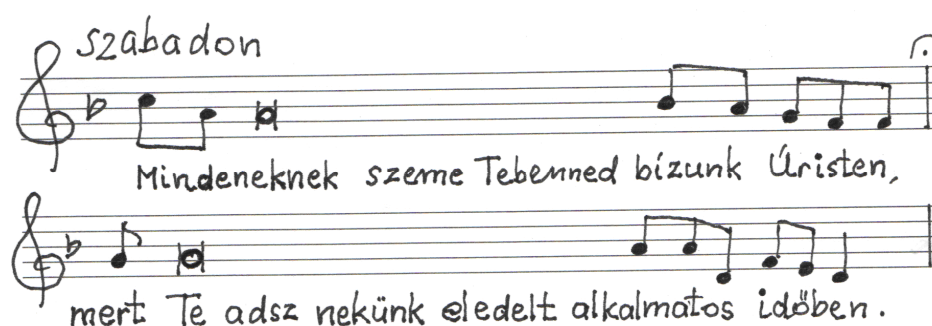 szabadon
Mindeneknek szeme Tebenned bízunk Úristen,
mert Te adsz nekünk eledelt alkalmatos időben.